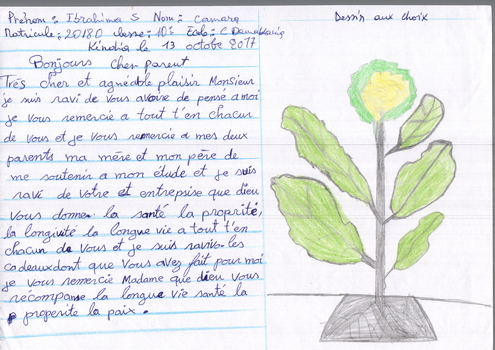 Prénom : Ibrahima S Nom : Camara
Matricule : 20180 classe : 10e Ecole : C Damakania
Kindia le 13 octobre 2017
Bonjours cher parent
Très cher et agnéable plaisir Monsieur
je suis ravi de vous avoire de pensé a moi
je vous remercie a tout t'en chacun
de vous et je vous remercie a mes deux
parents ma mère et mon père de
me soutenir a mon étude et je suis
ravi de votre et entrepise que dieu
vous donne la santé la proprité,
la longivité la longue vie a tout t'en
chacun de vous et je suis ravi les
cadeaux dont que vous avez fait pour moi
je vous remercie Madame que dieu vous
récompanse la longue vie santé la
properite la paix.
Dessin aux choix